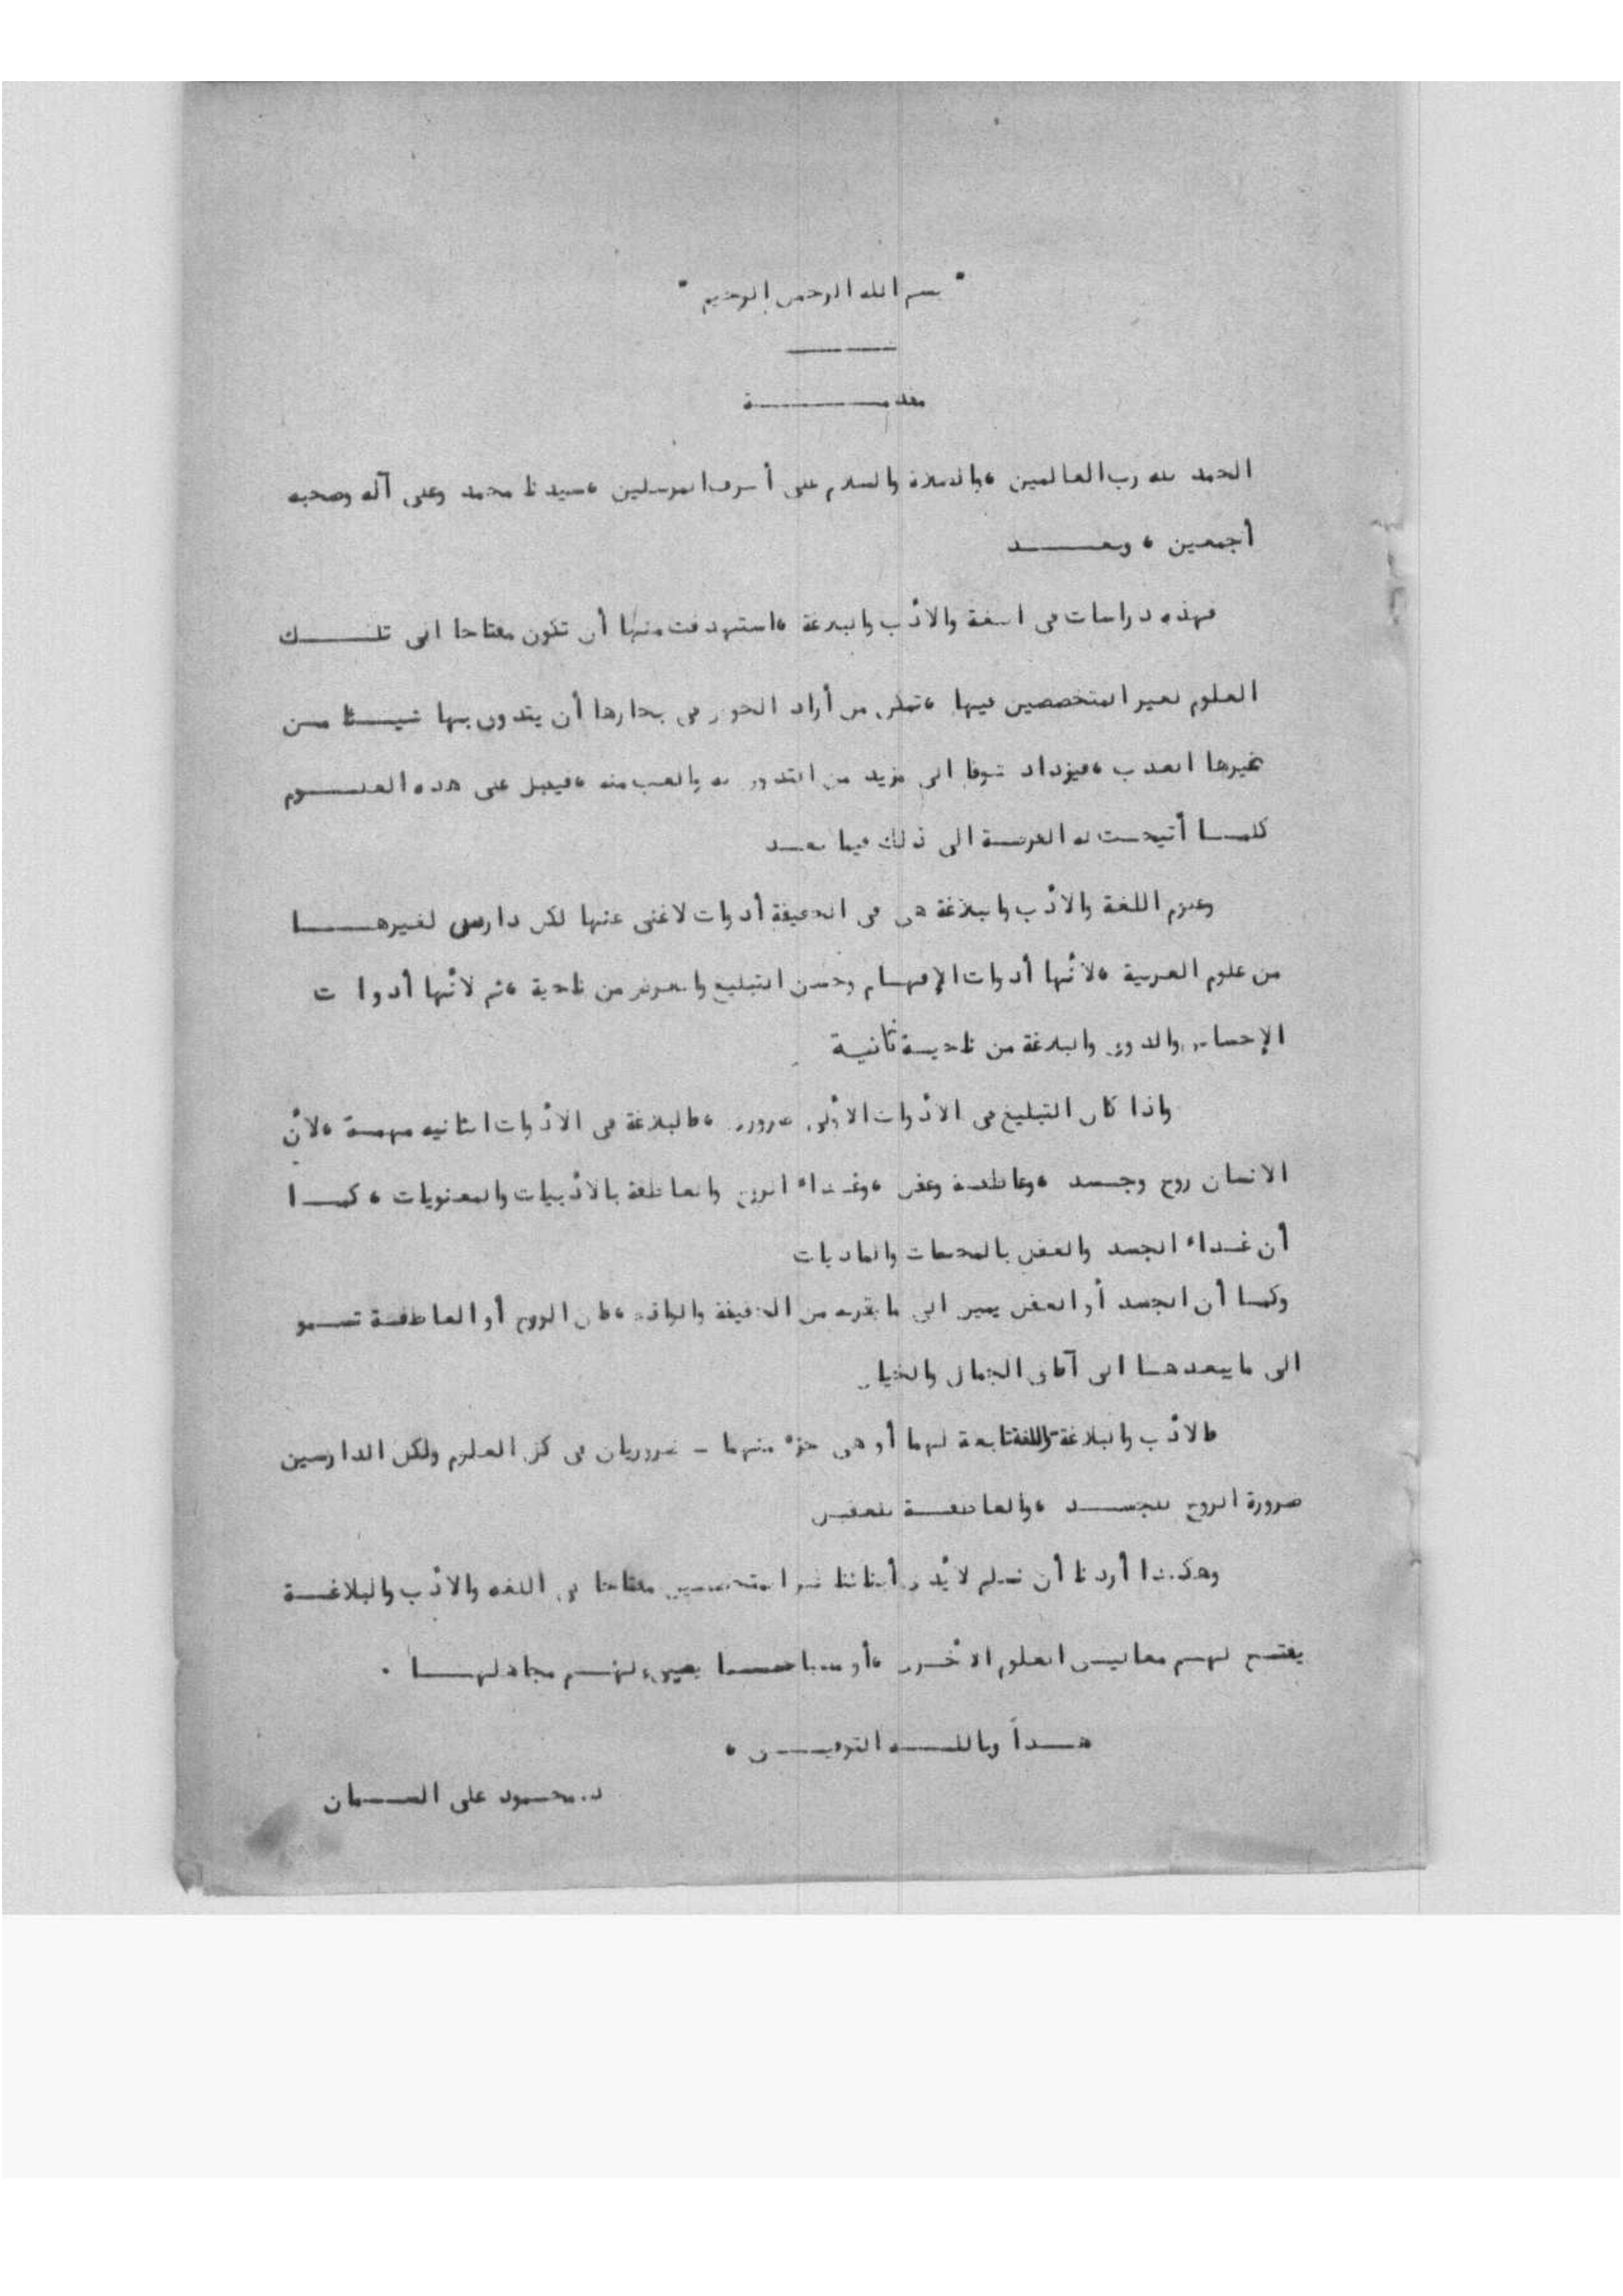 " بسم الله الرحمن الرحيم "
مقدمة
الحمد لله رب العالمين ، والصلاة والسلام على أشرف المرسلين ، سيدنا محمد وعلى آله وصحبه
أجمعين ، وبعد
فهذه دراسات في اللغة والأدب والبلاغة ، استهدفت منها أن تكون مفتاحا الى تلك
العلوم لغير المتخصصين فيها ، تمكن من أراد الخوض في بحارها أن يتذوق بها شيئا من
نميرها العذب ، فيزداد شوقا الى مزيد من التذوق له والعب منه ، فيقبل على هذه العلوم
كلما أتيحت له الفرصة الى ذلك فيما بعد
وعلوم اللغة والأدب والبلاغة هي في الحقيقة أدوات لا غنى عنها لكل دارس لغيرها
من علوم العربية ، لأنها أدوات الإفهام وحسن التبليغ والعرض من ناحية ، ثم لأنها أدوات
الإحساس والذوق والبلاغة من ناحية ثانية
واذا كان التبليغ في الأدوات الأولى ضرورة ، فالبلاغة في الأدوات الثانية مهمة ، لأن
الانسان روح وجسد ، وعاطفة وعقل ، وغذاء الروح والعاطفة بالأدبيات والمعنويات ، كما
أن غذاء الجسد والعقل بالمحسات والماديات
وكما أن الجسد أو العقل يميل الى ما يقربه من الحقيقة والواقع ، فان الروح أو العاطفة تسمو
الى ما يبعدها الى آفاق الجمال والخيال
فالأدب والبلاغة واللغة تابعة لهما أو هي جزء منهما - ضروريان في كل العلوم ولكل الدارسين
ضرورة الروح للجسد ، والعاطفة للعقل
وهكذا أردنا أن نسلم لأيدي أبنائنا غير المتخصصين مفتاحا في اللغة والأدب والبلاغة
يفتح لهم مغاليق العلوم الأخرى ، أو مصباحا يضيء لهم مجاهلها .
هذا وبالله التوفيق ،
د. محمود على السمان